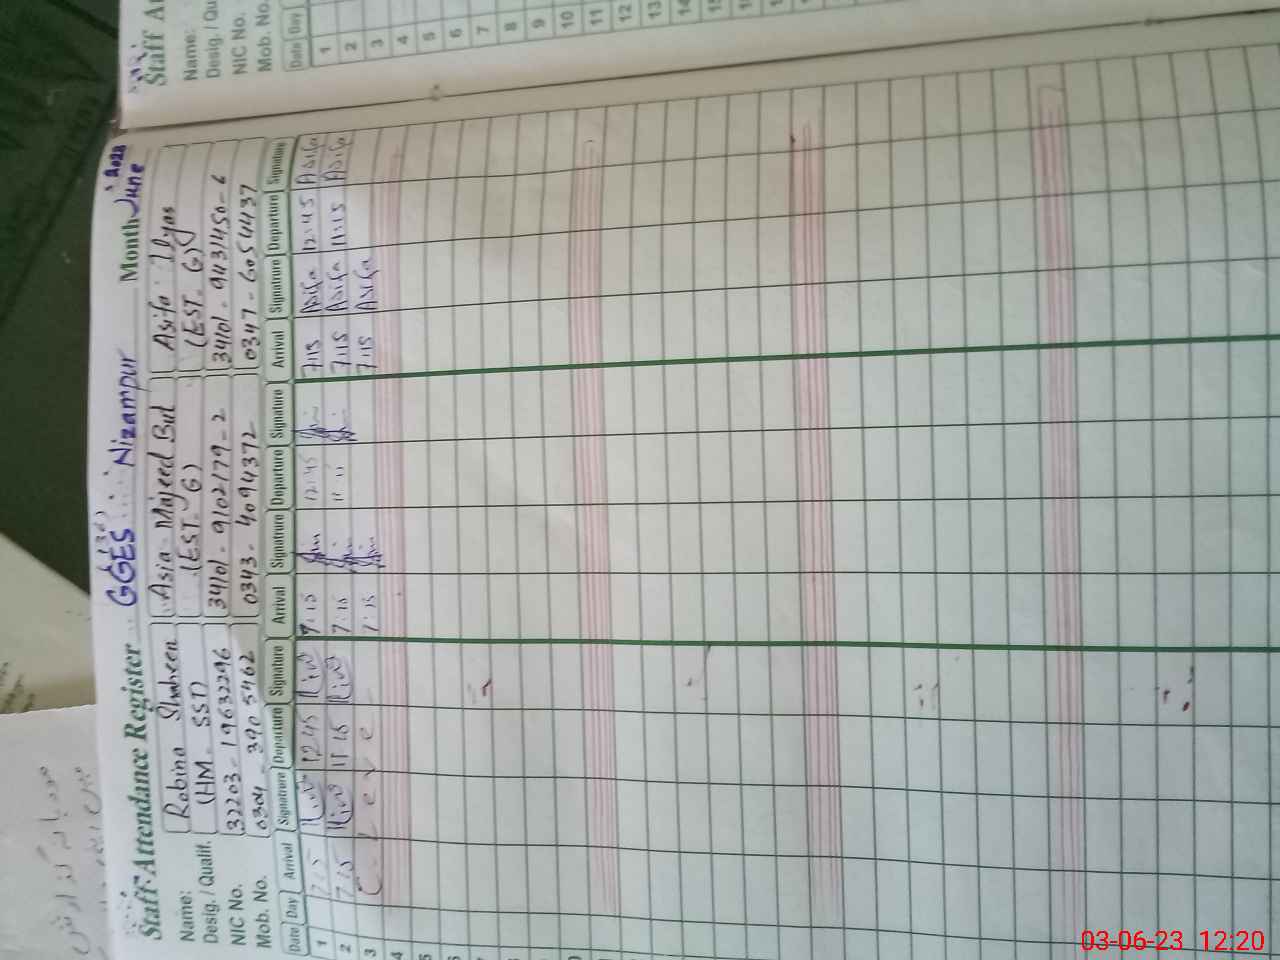 Staff Attendance Register GGES (136) Nizampur Month June 2023
Name: Robina Shaheen Asia Majeed But Asifa Ilyas
Desig. / Qualif. (HM - SST) (EST - G) (EST - G)
NIC No. 32203-19632296 34101-9102179-2 34101-9431450-6
Mob. No. 0304-3905462 0343-4094372 0347-6054437
Date Day Arrival Signatrure Departure Signature Arrival Signatrure Departure Signature Arrival Signatrure Departure Signature
1 7:15 1245 7:15 12:45 7:15 Asifa 12:45 Asifa
2 7:15 11 15 7:15 11:11 7:15 Asifa 11:15 Asifa
3 Leave 7:15 7:15 Asifa
4
5
6
7
8
9
Staff At
Name:
Desig. / Qu
NIC No.
Mob. No.
Date Day
1
2
3
4
5
6
7
8
9
10
11
12
13
14
03-06-23 12:20